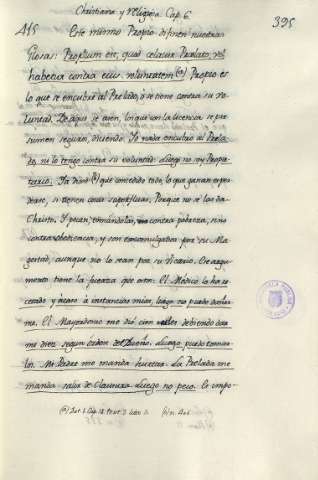 Christiana y Religiosa Cap. 6.
415
395
Este mismo Propio difinen nuestras
Glosas: Proprium est, quod celatur Prelato, vel
habetur contra eius voluntatem (a) Propio es
lo que se encubre al Prelado, ó se tiene contra su vo-
luntad. De aqui se asen, los que con la licencia se pre-
sumen seguros, diciendo. Yo nada encubro al Prela-
do, ni lo tengo contra su voluntad: luego no soy Propie-
tario. Ya dixo (b) que concedido todo, lo que ganan
si tienen cosas superfluas, Porque no se las da
Christo. Y pecan tomandolas, no contra pobreza, sino
contra obediencia, y son excomulgadas por su Ma-
gestad, aunque no lo sean por su Vicario. Ese argu-
mento tiene la fuerza que este. El Médico lo ha re-
cetado y acaso á instancias mias, luego no puede dañar-
me. El Mayordomo me dió cien debiendo dar-
me diez segun orden del Dueño. Luego puedo tomar-
los. Mi Padre me manda hurtar. La Prelada me
manda salir de Clausura. Luego no peco. Le impo-